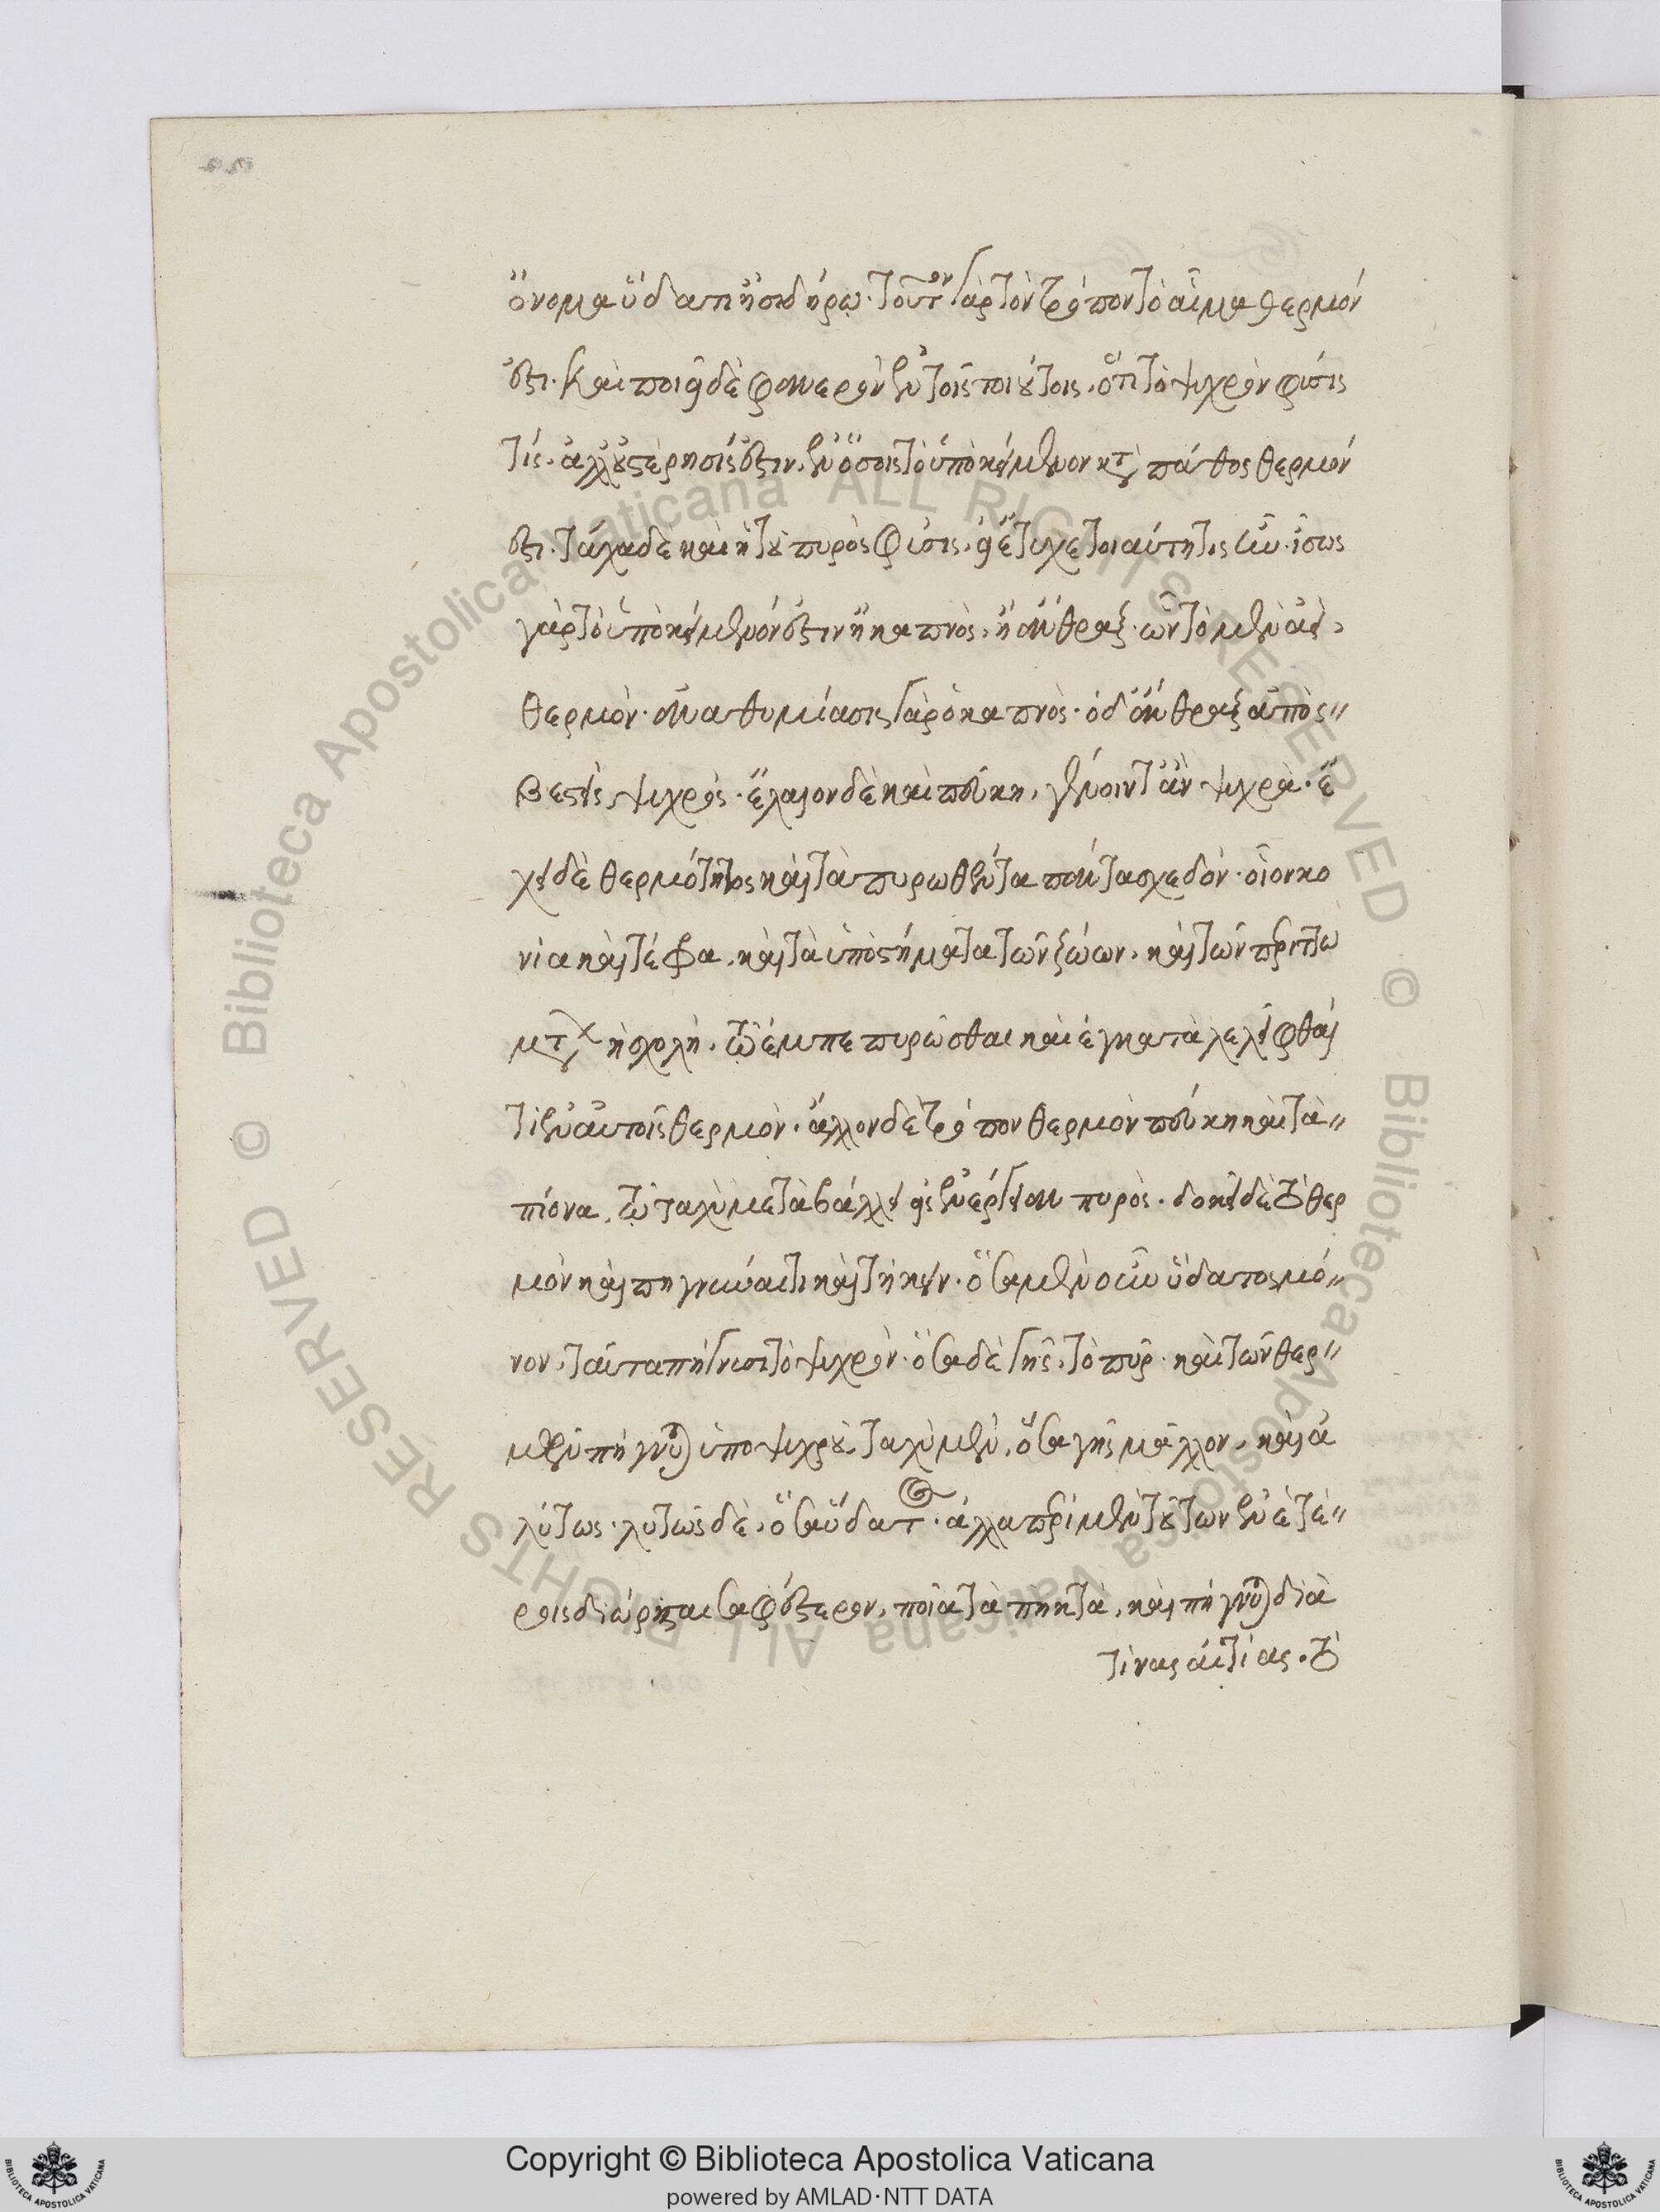 ὄνομα ὕδατι ἢ σιδήρῳ. τοῦτον γὰρ τὸν τρόπον τὸ αἷμα θερμόν
ἐστι. καὶ ποιεῖ δὲ φανερὸν ἐν τοῖς τοιούτοις, ὅτι τὸ ψυχρὸν φύσις
τίς. ἀλλ' οὐ στέρησίς ἐστιν. ἐν ὅσοις τὸ ὑποκείμενον κατὰ πάθος θερμόν
ἐστι. τάχα δὲ καὶ ἡ τοῦ πυρὸς φύσις, εἰ ἔτυχε τοιαύτη τις οὖν. ἴσως
γὰρ τὸ ὑποκείμενόν ἐστιν ἢ καπνὸς, ἢ ἄνθραξ. ὧν τὸ μὲν ἀεὶ,
θερμόν. ἀναθυμίασις γὰρ ὁ καπνὸς. ὁ δ' ἄνθραξ ἀποσ〃
βεσθεὶς ψυχρός. ἔλαιον δὲ καὶ πεύκη, γένοιντ' ἂν ψυχρὰ. ἔ
χει δὲ θερμότητος καὶ τὰ πυρωθέντα πάντα σχεδόν. οἷον κο
νία καὶ τέφρα, καὶ τὰ ὑποστήματα τῶν ζώων, καὶ τῶν περιττω
μάτων ἡ χολὴ, τῷ ἐμπεπυρῶσθαι καὶ ἐγκαταλελεῖφθαι
τὶ ἐν αὐτοῖς θερμὸν. ἄλλον δὲ τρόπον θερμὸν πεύκη καὶ τὰ〃
πίονα, τῷ ταχὺ μεταβάλλειν εἰς ἐνέργειαν πυρὸς. δοκεῖ δὲ τὸ θερ
μὸν καὶ πηγνύναι τι καὶ τήκειν. ὅσα μὲν οὖν ὕδατος μό〃
νον, ταῦτα πήγνυσι τὸ ψυχρὸν. ὅσα δὲ γῆς, τὸ πῦρ. καὶ τῶν θερ〃
μῶν πήγνυται ὑπὸ ψυχροῦ ταχὺ μὲν, ὅσα γῆς μᾶλλον, καὶ ἀ
λύτως. λυτῶς δὲ, ὅσα ὕδατος. ἀλλὰ περὶ μὲν τούτων ἐν ἑτέ〃
ροις διώρισται σαφέστερον, ποῖα τὰ πηκτὰ, καὶ πήγνυται διὰ
τίνας αἰτίας. τὸ
Copyright © Biblioteca Apostolica Vaticana
powered by AMLAD·NTT DATA